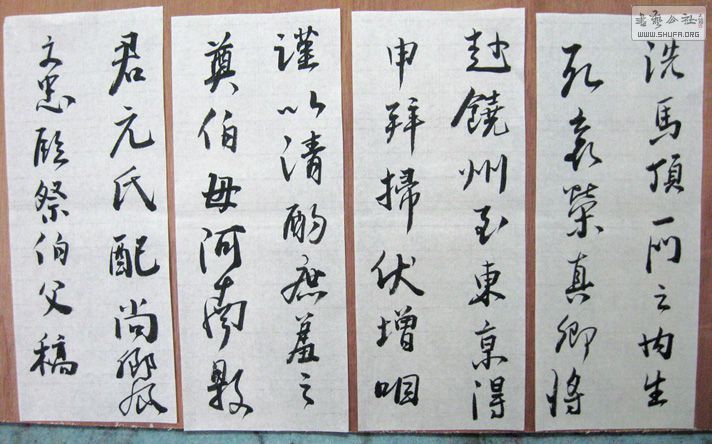 洗馬頂一門之內生
死哀榮真卿將
赴饒州至東京得
申拜掃伏增咽
謹以清酌庶羞之
奠伯母河南縣
君元氏配尚饗
文忠祭伯父稿
書藝公社
WWW.SHUFA.ORG